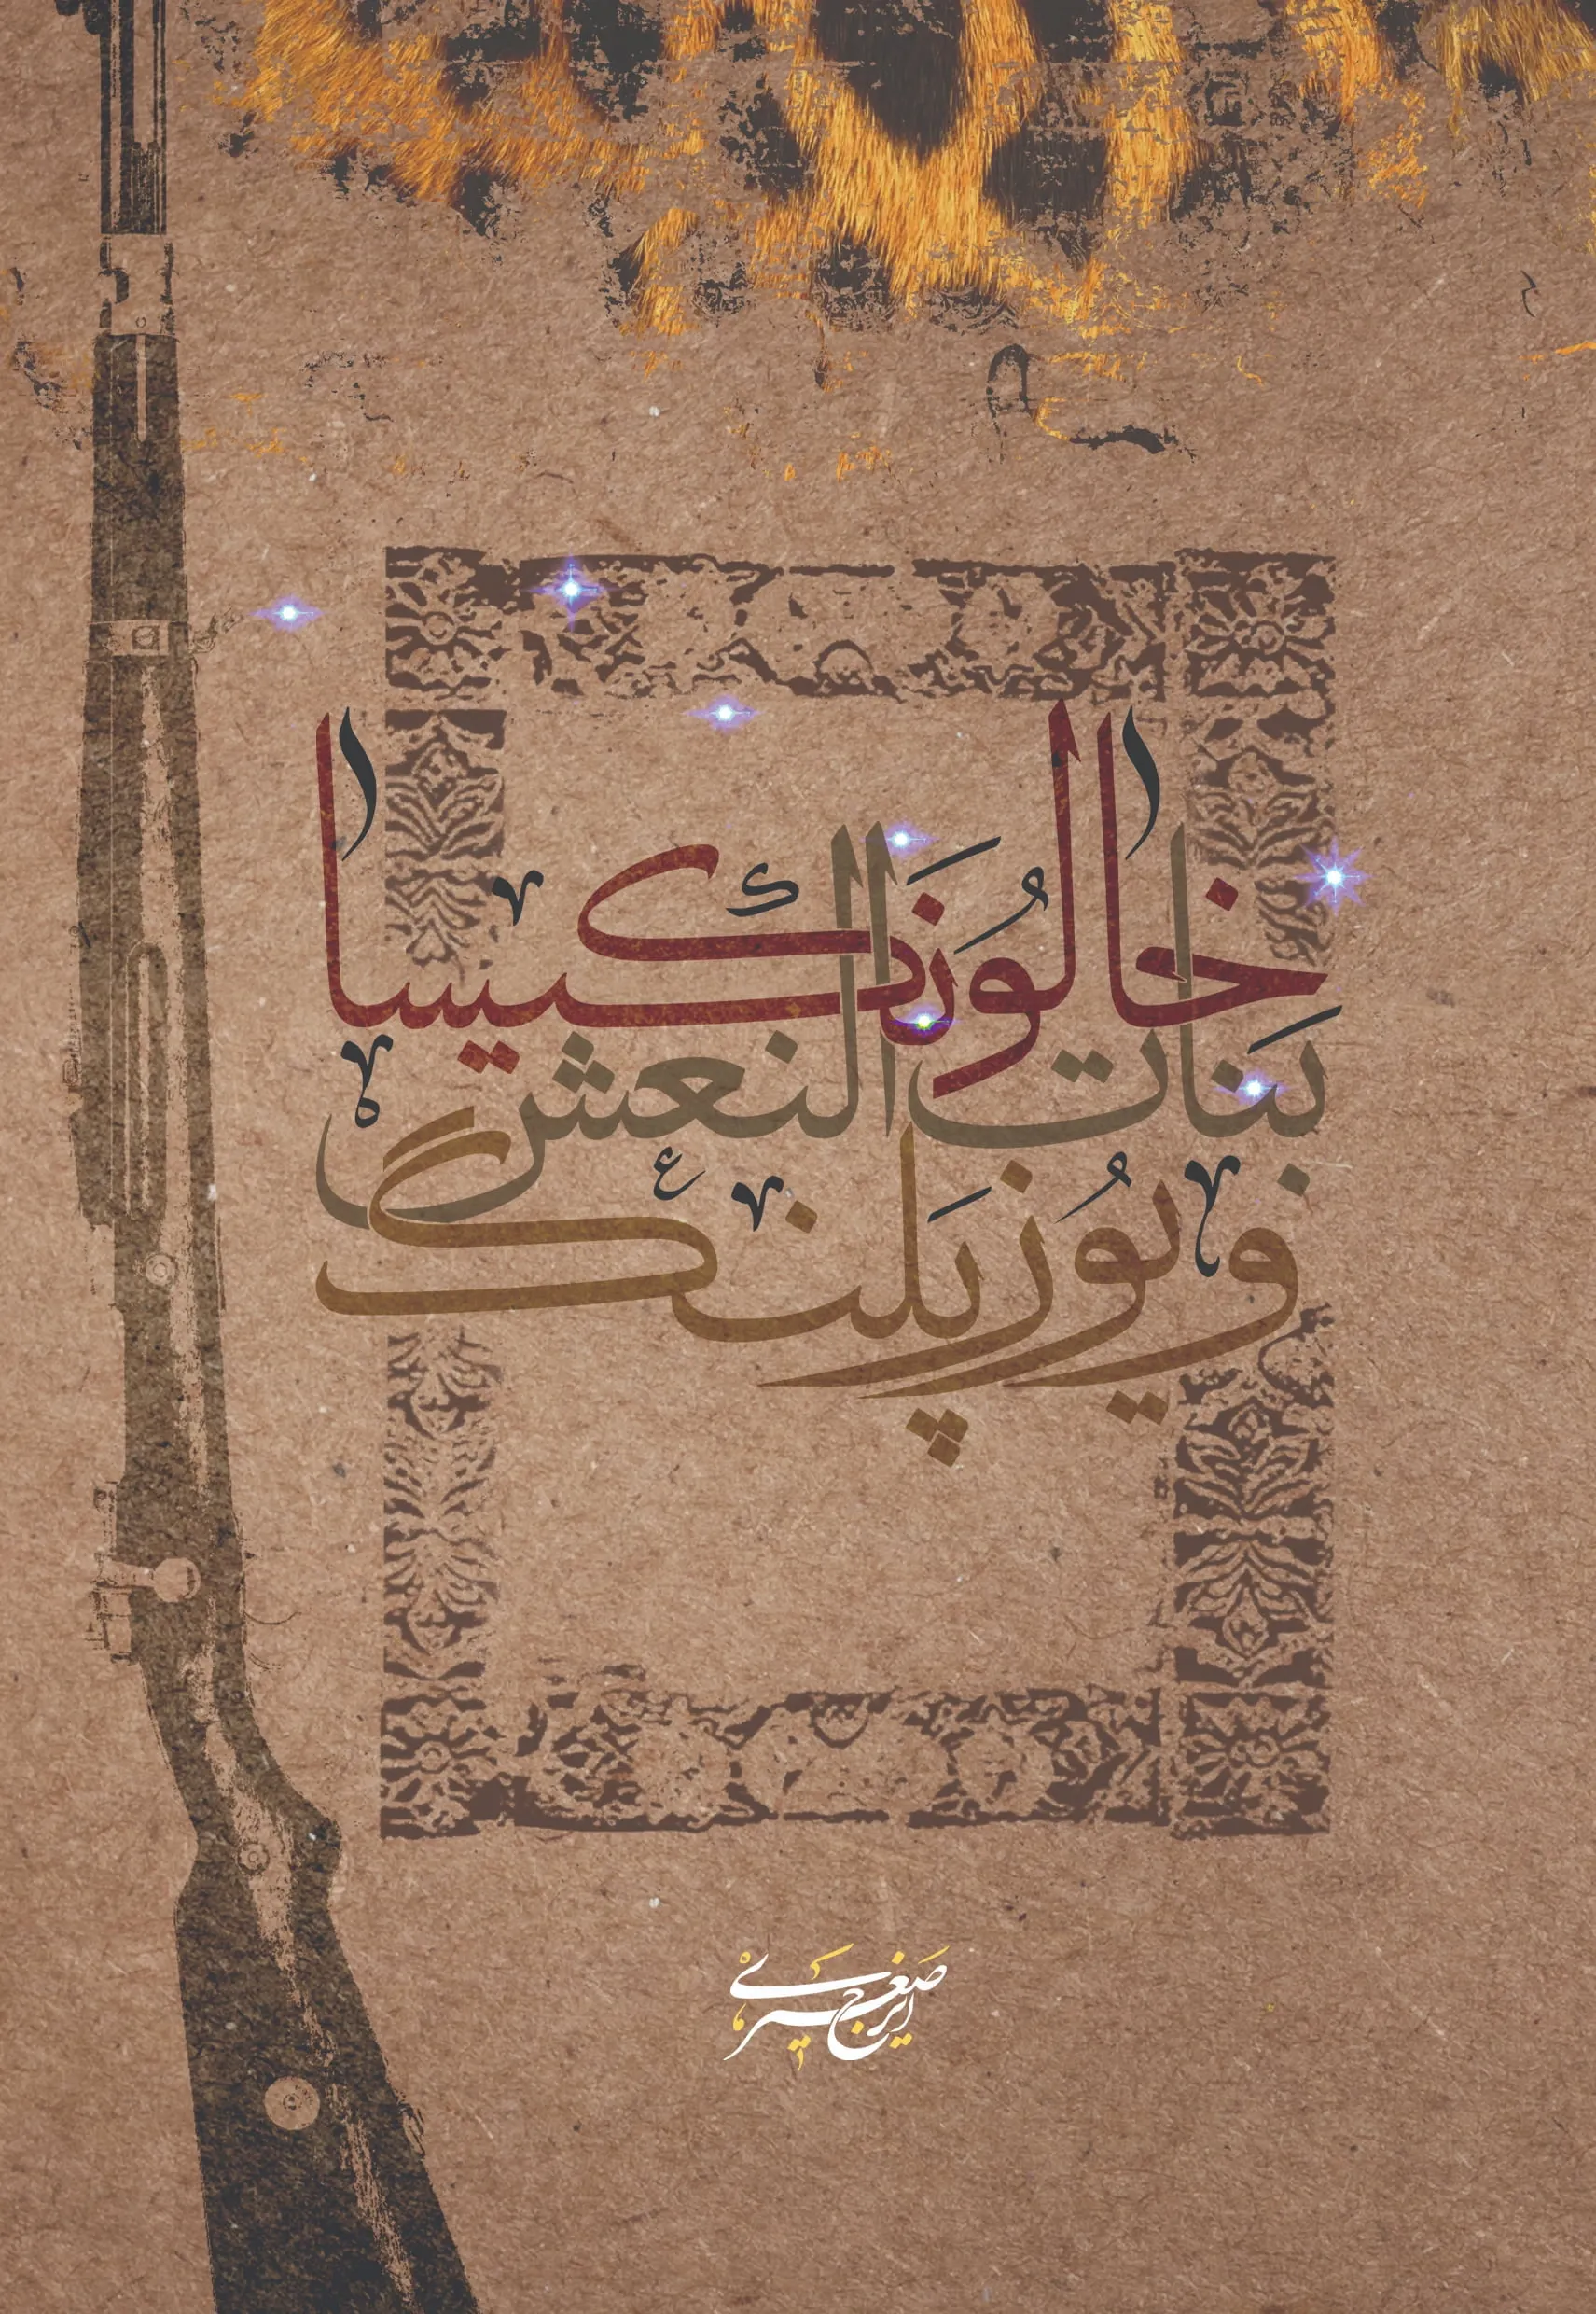 خالُونَکیسا
بَنات النعش
و یُوزپَلنگ
ایرج صغیری